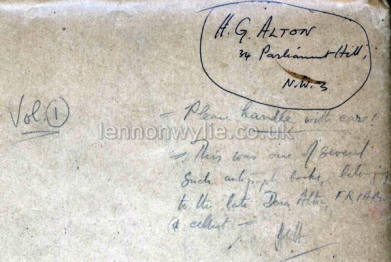 H. G. ALTON
34 Parliament Hill,
N.W.3
Vol. 1
- Please handle with care!
lennonwylie.co.uk
- This was one of several
such autograph books, belong
to the late Dora Alton, F.R.I.A.M.
& cellist -